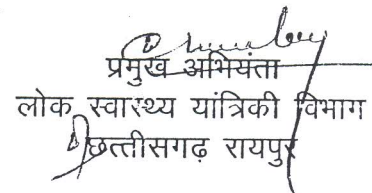 प्रमुख अभियंता
लोक स्वास्थ्य यांत्रिकी विभाग
छत्तीसगढ़ रायपुर